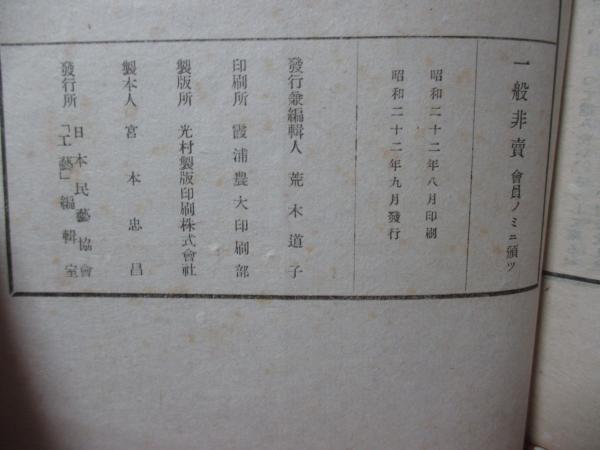 一般非賣 會員ノミニ頒ツ
昭和二十二年八月印刷
昭和二十二年九月發行
發行兼編輯人 荒木道子
印刷所 霞浦農大印刷部
製版所 光村製版印刷株式會社
製本人 宮本忠昌
發行所 日本民藝協會
「工藝」編輯室